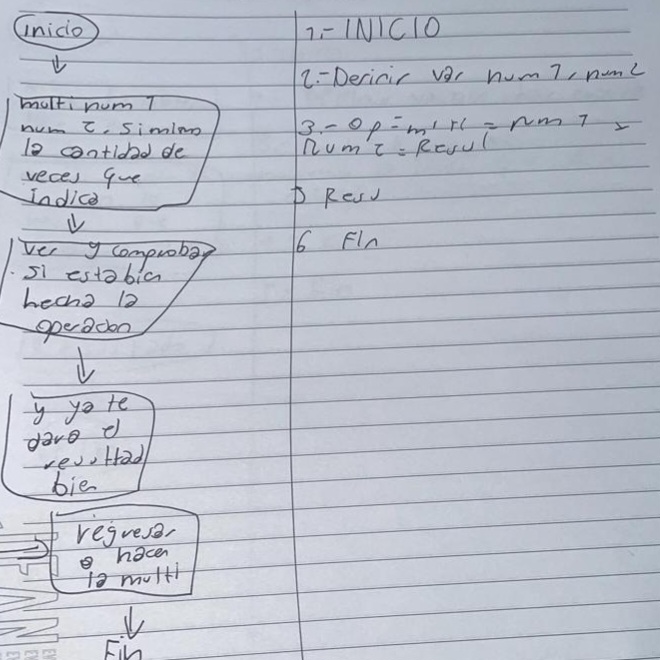 inicio
multi num 1
num 2, simlmo
la cantidad de
veces que
indica
ver y comprobar
si esta bien
hecha la
operacion
y ya te
dara el
resultad
bien
regresar
a hacer
la multi
Fin
1.- INICIO
2.- Derinir var num 1, num 2
3.- Op = = num 1
num 2 = Resul
Resu
6 Fin